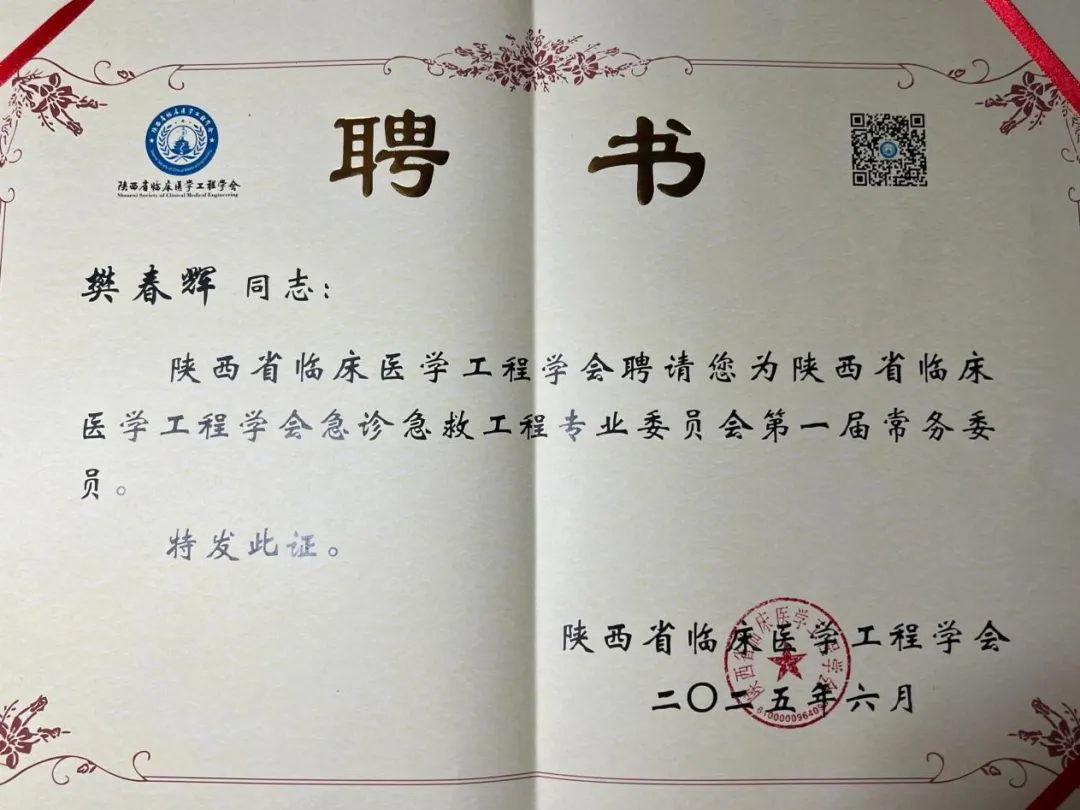 陕西省临床医学工程学会
Shaanxi Society of Clinical Medical Engineering
聘 书
樊春辉 同志：
陕西省临床医学工程学会聘请您为陕西省临床
医学工程学会急诊急救工程专业委员会第一届常务委
员。
特发此证。
陕西省临床医学工程学会
二〇二五年六月
陕西省临床医学工程学会